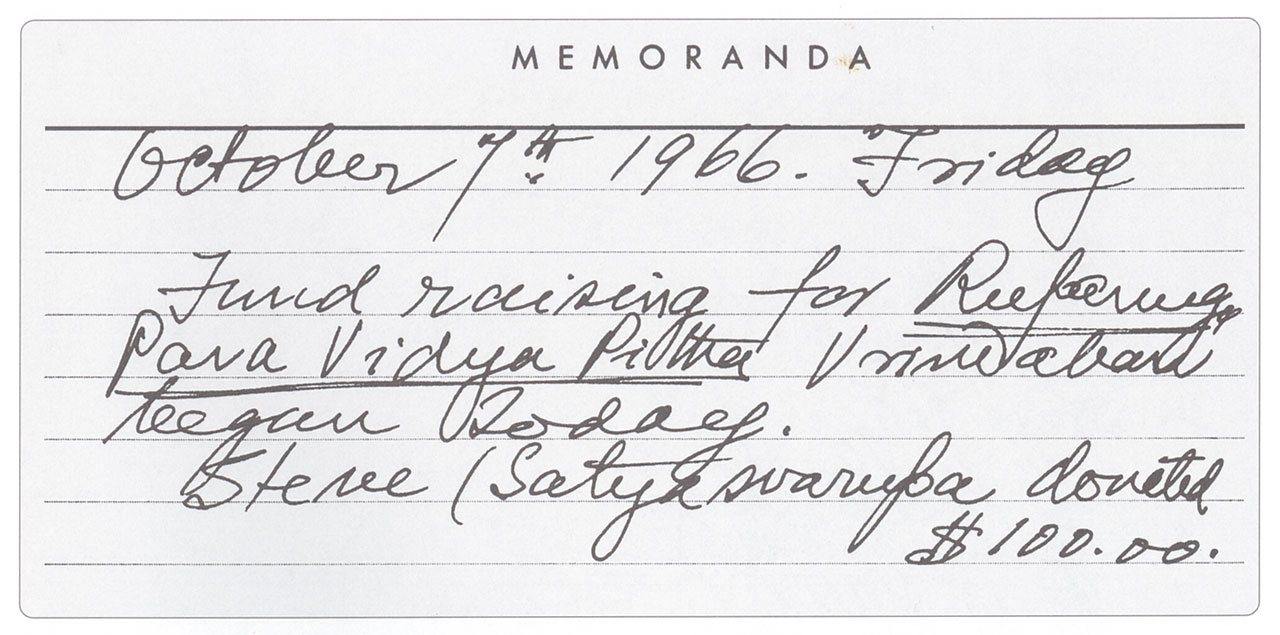 MEMORANDA
October 7th 1966. Friday
Fund raising for Rupanuga
Para Vidya Pitha Vrindaban
began today.
Steve (Satyasvarupa donated
$100.00.